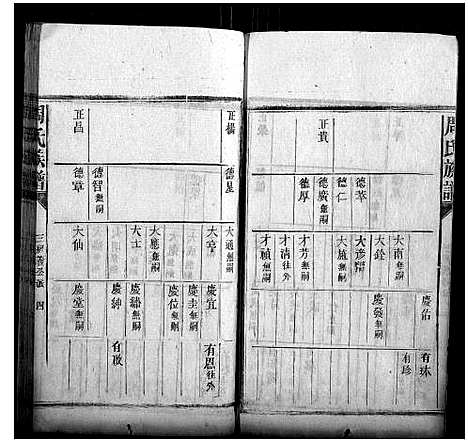 周氏族譜
慶佑
有珎
有珍
大南無嗣
大銓
慶發無嗣
德萃
大彦
德仁
大施無嗣
正貴
德廣無嗣
德厚
才芳無嗣
才清往外
才禎無嗣
正楊
德星
大通無嗣
大亨
慶宜
有恩往外
慶圭無嗣
大廳無嗣
慶位無嗣
大士
慶緒無嗣
慶紳
有政
正昌
德智無嗣
德草
大仙
慶堂無嗣
周氏族譜
四